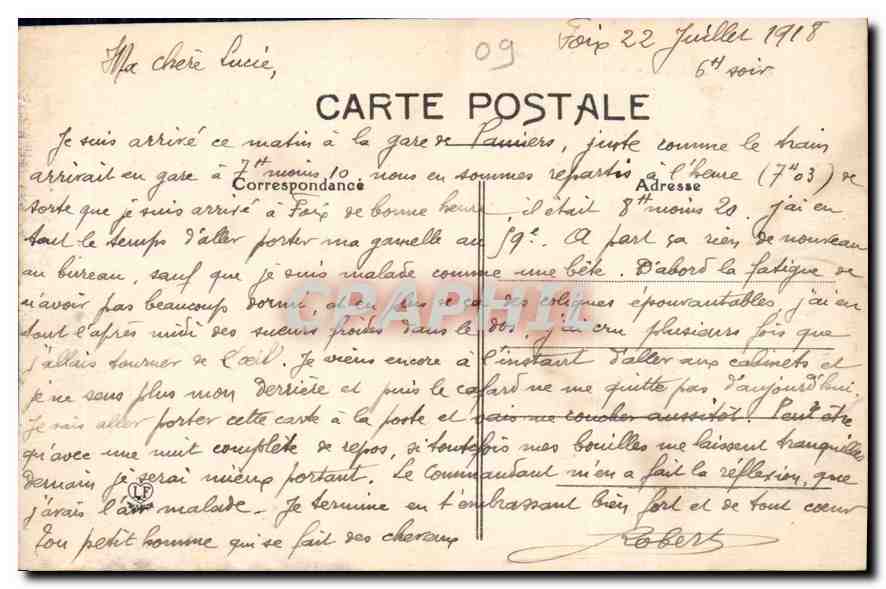 Foix 22 Juillet 1918
6H soir
09
Ma chère Lucie,
CARTE POSTALE
Je suis arrivé ce matin à la gare de Pamiers, juste comme le train
arrivait en gare à 7H moins 10 nous en sommes repartis à l'heure (7H03) de
Correspondance
Adresse
sorte que je suis arrivé à Foix de bonne heure, il était 8H moins 20. j'ai eu
tout le temps d'aller porter ma gamelle au 59e. A part ça rien de nouveau
au bureau, sauf que je suis malade comme une bête. D'abord la fatigue de
n'avoir pas beaucoup dormi, et en plus de ça des coliques épouvantables j'ai eu
tout l'après midi des sueurs froides dans le dos, j'ai cru plusieurs fois que
CPAPHIL
j'allais tourner de l'œil. Je viens encore à l'instant d'aller aux cabinets et
je ne sens plus mon derrière et puis le cafard ne me quitte pas d'aujourd'hui.
Je vais aller porter cette carte à la poste et vais me coucher aussitôt. Peut être
qu'avec une nuit complète de repos, si toutefois mes bouilles me laissent tranquilles
demain je serai mieux portant. Le Commandant m'en a fait la réflexion, que
j'avais l'air malade. Je termine en t'embrassant bien fort et de tout cœur
LF
Ton petit homme qui se fait des cheveux
Robert